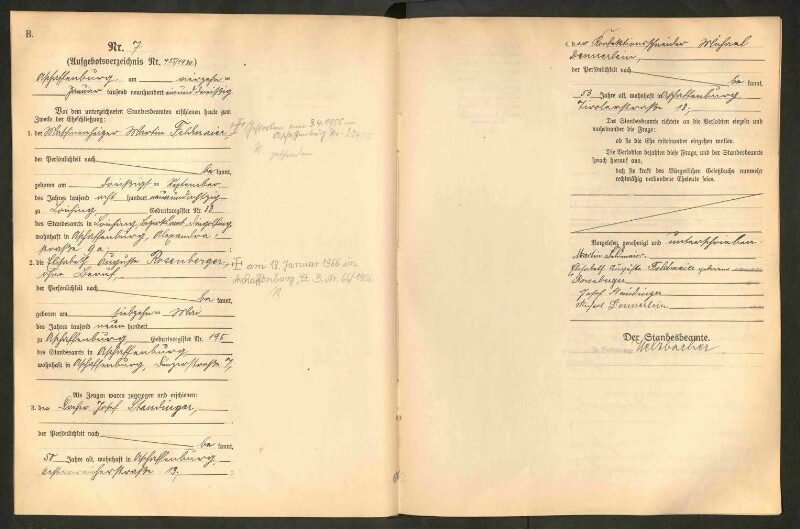 B.
Nr. 7
(Aufgebotsverzeichnis Nr.
Aschaffenburg, am vierzehn ten
Januar tausend neunhundert einunddreißig
Vor dem unterzeichneten Standesbeamten erschienen heute zum
Zwecke der Eheschließung:
1. der Martin Feldmeier,
der Persönlichkeit nach
be kannt,
geboren am dreißigst en September
des Jahres tausend acht hundert neunundachtzig
zu Geburtsregister Nr. 38
des Standesamts in Bezirksamt Dingolfing
wohnhaft in Aschaffenburg, Alexandra-
straße 9a;
2. die Elisabeth Auguste Rosenberger,
ohne Beruf,
der Persönlichkeit nach
be kannt,
geboren am siebzehn Mai
des Jahres tausend neun hundert
zu Aschaffenburg Geburtsregister Nr. 195
des Standesamts in Aschaffenburg,
wohnhaft in Aschaffenburg, 7,
Als Zeugen waren zugezogen und erschienen:
3. der Dreher Josef Staudinger,
der Persönlichkeit nach
be kannt,
50 Jahre alt, wohnhaft in Aschaffenburg,
straße 13;
Gestorben am 3.4.1955
Aschaffenburg Nr.
am 18. Januar 1966 in
Aschaffenburg, St. B. Nr. 66/1966
4. der Konfektionsschneider Michael
Dennerlein,
der Persönlichkeit nach
be kannt,
53 Jahre alt, wohnhaft in Aschaffenburg
Tirolerstraße 13;
Der Standesbeamte richtete an die Verlobten einzeln und
nacheinander die Frage:
ob sie die Ehe miteinander eingehen wollen.
Die Verlobten bejahten diese Frage, und der Standesbeamte
sprach hierauf aus,
daß sie kraft des Bürgerlichen Gesetzbuchs nunmehr
rechtmäßig verbundene Eheleute seien.
Vorgelesen, genehmigt und unterschrieben.
Martin Feldmeier.
Elisabeth Auguste Feldmeier geborene
Rosenberger
Josef Staudinger
Michael Dennerlein
Der Standesbeamte.